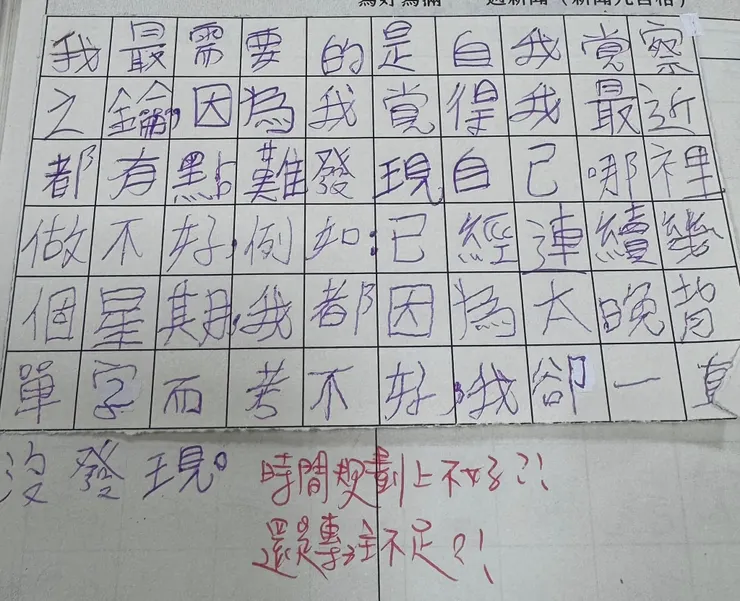 我最需要的是自我覺察
之鑰,因為我覺得我最近
都有點難發現自己哪裡
做不好,例如:已經連續幾
個星期,我都因為太晚背
單字而考不好,我卻一直
沒發現。
時間規劃上不好?!
還是專注不足?!